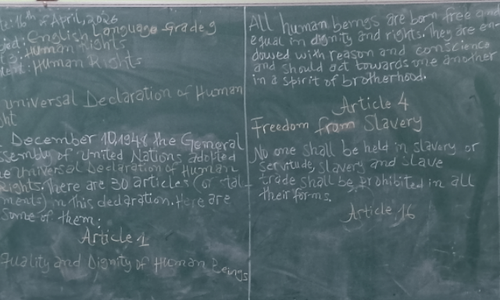 16th April, 2026
English Language Grade 9
Human Rights
Human Rights
Universal Declaration of Human
December 10, 1948 the General
ssembly of United Nations adopted
e Universal Declaration of Human
Rights. There are 30 articles (or tal
ments) in this declaration. Here are
some of them:
Article 1
Equality and Dignity of Human Beings
All human beings are born free a
equal in dignity and rights. They are en
dowed with reason and conscience
and should act towards one another
in a spirit of brotherhood.
Article 4
Freedom from Slavery
No one shall be held in slavery or
servitude, slavery and slave
trade shall be prohibited in all
their forms.
Article 16